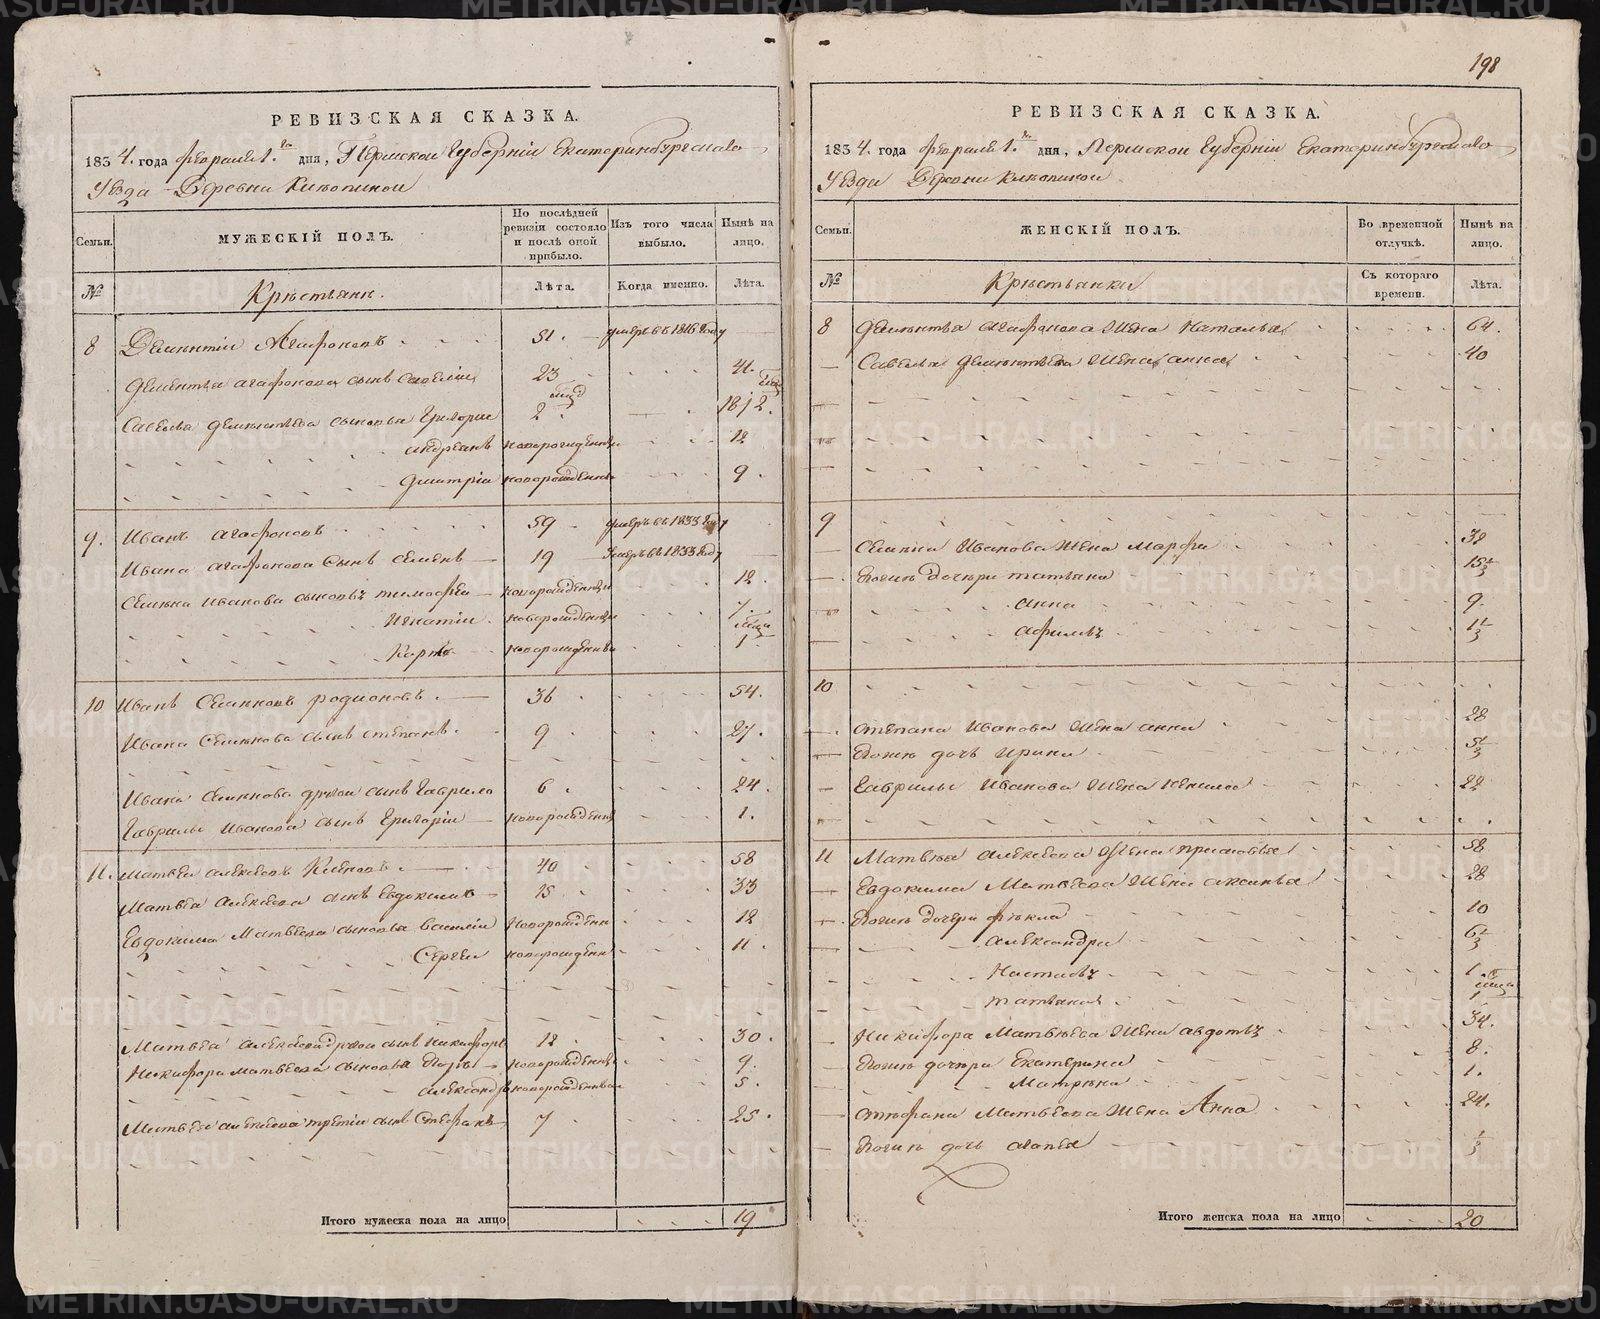 198
РЕВИЗСКАЯ СКАЗКА.
1834. года февраля 1.го дня, Пермской Губернiи Екатеринбургскаго
Уезда Деревни
Семьи.
МУЖЕСКІЙ ПОЛЪ.
По послѣдней ревизіи состояло и послѣ оной прибыло.
Изъ того числа выбыло.
Нынѣ на лицо.
№
Крѣстьяне.
Лѣта.
Когда именно.
Лѣта.
8 Дементiй Агафоновъ 51. умеръ въ 1816 году
Дементья агафонова сынъ Савелiй 23 41.
Савелья дементьева сыновья Григорiй 2 18/2.
андреанъ новорожденный 12
Дмитрiй новорожденный 9.
9. Иванъ агафоновъ 59 умеръ въ 1833 году
Ивана агафонова сынъ Семенъ 19 Умеръ въ 1833 году
Семена иванова сыновья тимофей новорожденный 12.
Игнатiй новорожденный 7.
новорожденный 1
10 Иванъ Семеновъ родионовъ 36 54.
Ивана Семенова сынъ степанъ 9 27.
Ивана Семенова другой сынъ Гаврило 6 24.
Гаврилы Иванова сынъ Григорiй новорожденный 1.
11. матвей алексеевъ 40 58
Матвея Алексеева сынъ Евдокимъ 15 33
Евдокима Матвеева сыновья василiй новорожденный 12
Сергей новорожденный 11.
Матвея алексеева другой сынъ никифоръ 12 30.
Никифора матвеева сыновья новорожденный 9.
александръ новорожденный 5.
Матвея алексеева третiй сынъ Стефанъ 7 25.
Итого мужеска пола на лицо 19
РЕВИЗСКАЯ СКАЗКА.
1834. года февраля 1.го дня, Пермской Губернiи Екатеринбургскаго
Уезда Деревни
Семьи.
ЖЕНСКІЙ ПОЛЪ.
Во временной отлучкѣ.
Нынѣ на лицо.
№
Крѣстьянки
Съ котораго времени.
Лѣта.
8 Дементья агафонова жена Наталья 64.
Савелья дементьева жена анна 40
9
Семена Иванова жена Марфа 38
дочери татьяна 15½
анна 9.
10
степана Иванова жена анна 28
дочь ирина
Гаврилы Иванова жена 22
11 Матвея алексеева жена 58
Евдокима Матвеева жена аксинья 28
дочери фекла 10
александра
Настасья 1.
татьяна 1
Никифора Матвеева жена авдотья 34.
дочери Екатерина 8.
Матрена 1.
стефана Матвеева жена Анна 24.
дочь
Итого женска пола на лицо 20
METRIKI.GASO-URAL.RU